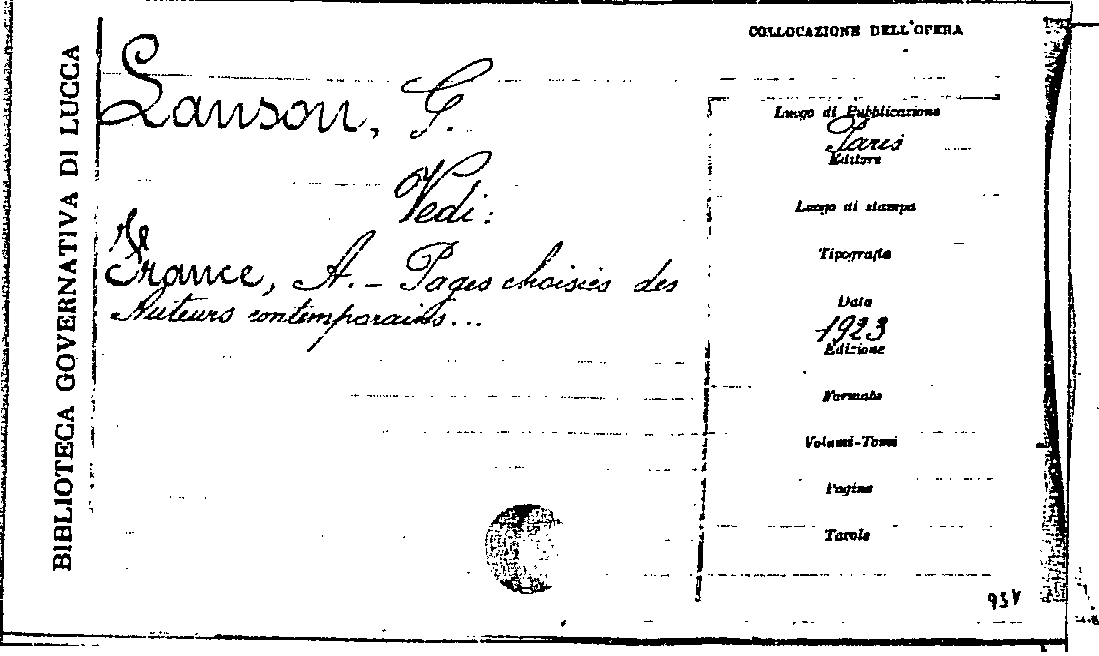 BIBLIOTECA GOVERNATIVA DI LUCCA
COLLOCAZIONE DELL'OPERA
Lanson, G.
Vedi:
France, A. - Pages choisies des
Auteurs contemporains...
Luogo di Pubblicazione
Paris
Editore
Luogo di stampa
Tipografia
Data
1923
Edizione
Formato
Volumi-Tomi
Pagine
Tavole